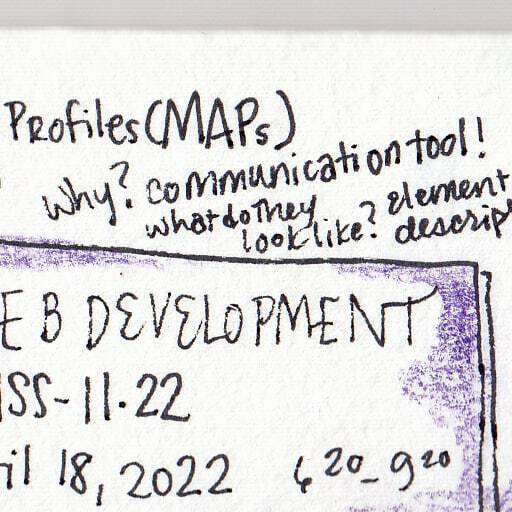 Profiles (MAPs)
Why? communication tool!
what do They look like? element descrip
EB DEVELOPMENT
ISS-11.22
il 18, 2022 6 20 - 9 20